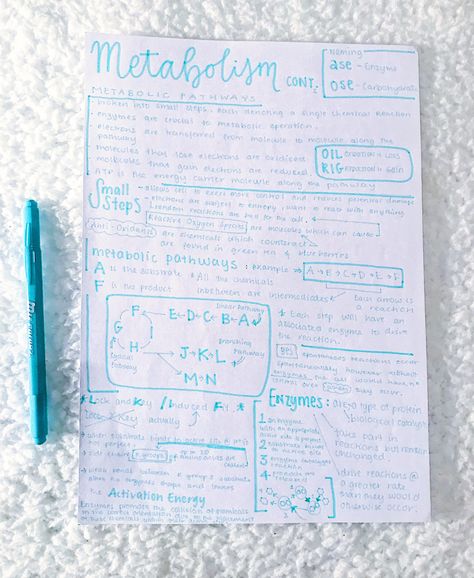 Metabolism CONT.
Naming
ase - Enzyme
ose - Carbohydrate
METABOLIC PATHWAYS
broken into small steps, each denoting a single chemical reaction
enzymes are crucial to metabolic operation.
electrons are transferred from molecule to molecule along the
pathway
molecules that lose electrons are oxidised
molecules that gain electrons are reduced
ATP is the energy carrier molecule along the pathway
OIL Oxidation is Loss
RIG Reduction is Gain
Small Steps
allows cell to exert more control and
electrons are subject to entropy, want to react with anything
random reactions are bad for the cell
Reactive Oxygen Species are molecules which can cause
Anti-Oxidants are chemicals which counteract
are found in green tea & blueberries
metabolic pathways : example
A → B → C → D → E → F
A is the substrate & All the chemicals
F is the product inbetween are intermediates
Each arrow is
a reaction
* Each step will have an
associated enzyme to drive
the reaction.
Linear Pathway
F E ← D ← C ← B ← A
G
H J → K → L
M → N
Branching
Pathway
Pathway
yes spontaneous reactions occur
spontaneously however without
enzymes the cell would have no
control over
* Lock and Key / Induced Fit *
Lock & Key actually
when substrate binds to active site
side chains R groups amino acids are
weak bonds between R group & substrate
Activation Energy
Enzymes promote the collision of chemicals
in the correct orientation
Enzymes:
are a type of protein
biological catalyst
takes part
in reactions but remains
unchanged
drive reactions @
a greater rate
than they would
otherwise occur.
1 an enzyme
with an appropriate
active site is present
2 substrate binds
to active site
3 enzyme catalyses
reaction
4 products are
released